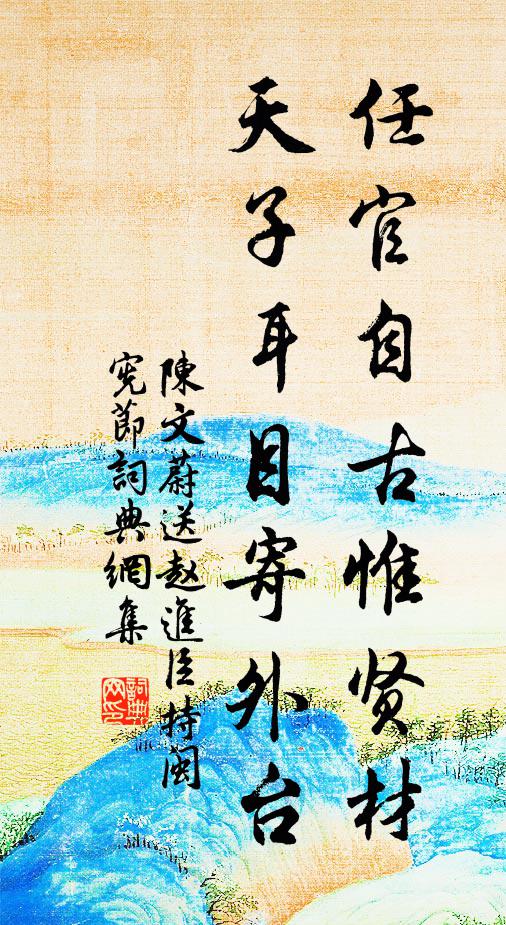 任官自古惟贤材
天子耳目寄外台
陳文蔚送赵進臣持閩
宪節詞典網集
詞典网印